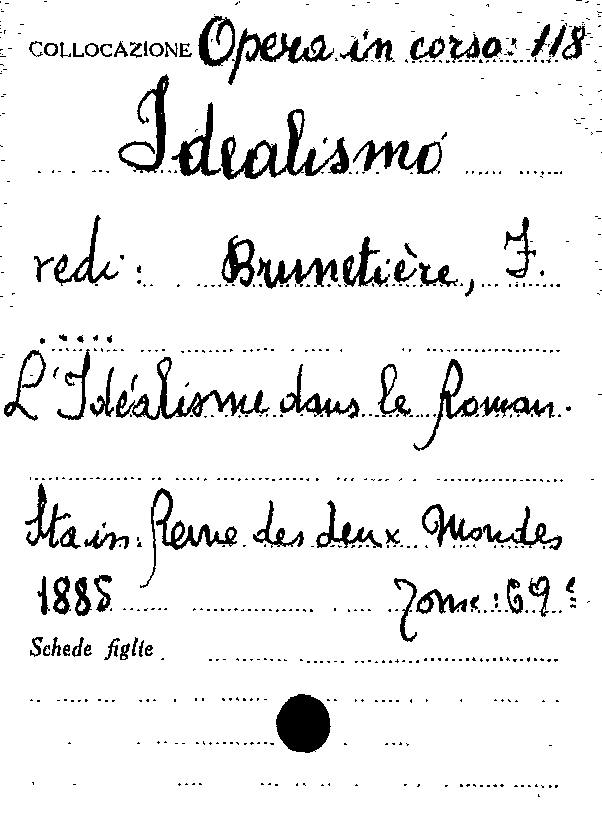 COLLOCAZIONE Opera in corso: 118
Idealismo
vedi: Brunetière, F.
.....
L'Idéalisme dans le Roman.
Sta in: Revue des deux Mondes
1885 Tome: 69e
Schede figlie